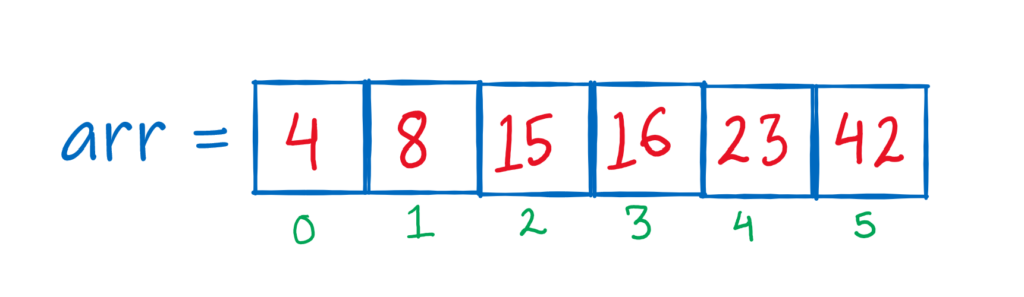 arr = 4 8 15 16 23 42
0 1 2 3 4 5